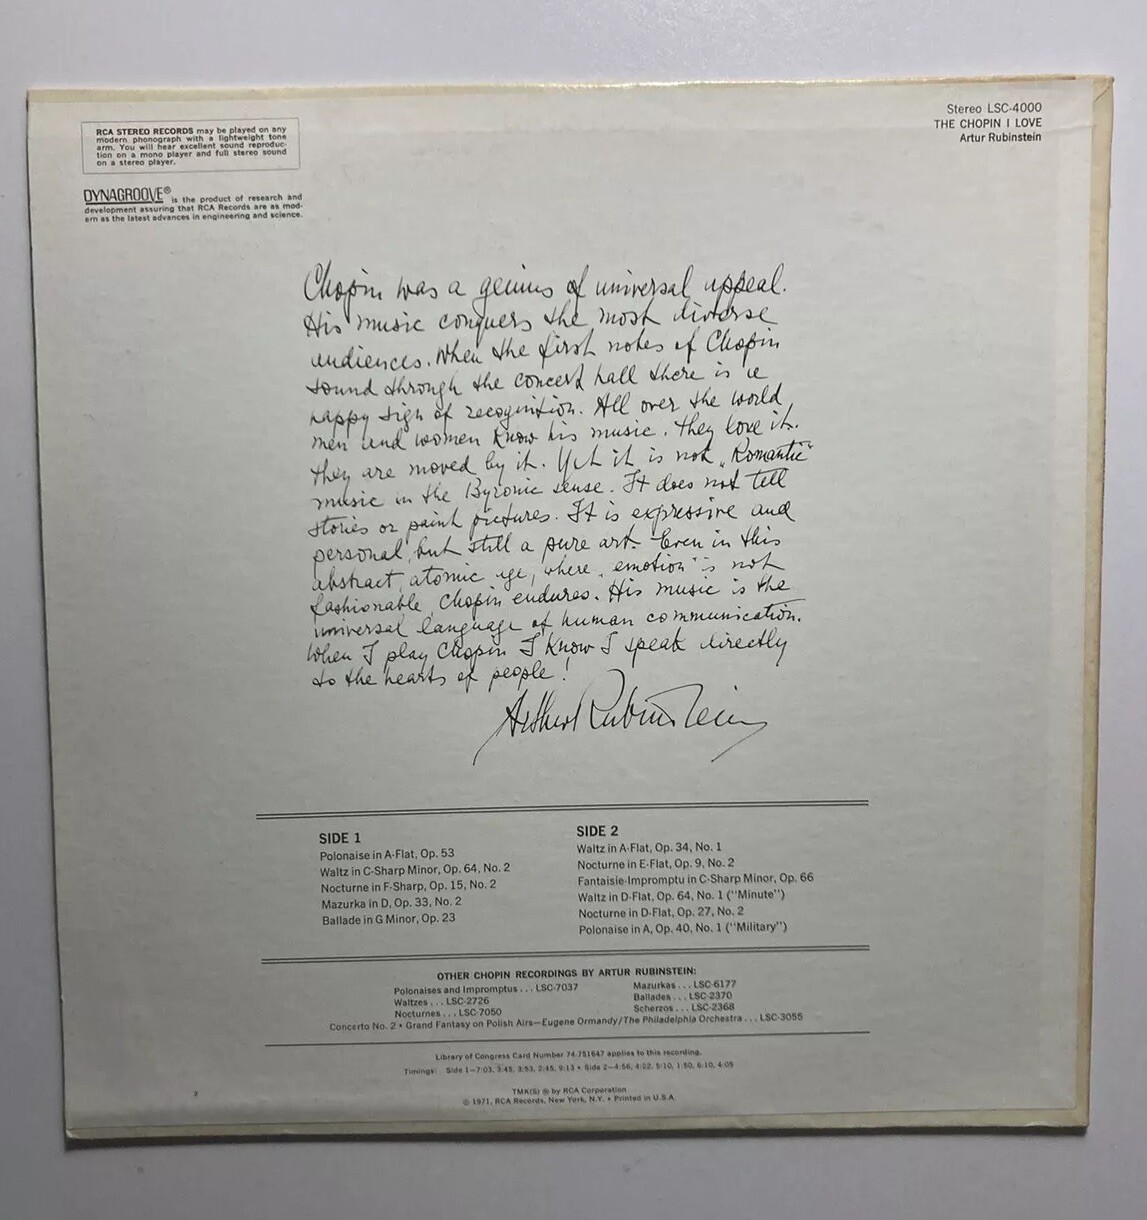 RCA STEREO RECORDS may be played on any
modern phonograph with a lightweight tone
arm. You will hear excellent sound reproduc-
tion on a mono player and full stereo sound
on a stereo player.
DYNAGROOVE® is the product of research and
development assuring that RCA Records are as mod-
ern as the latest advances in engineering and science.
Stereo LSC-4000
THE CHOPIN I LOVE
Artur Rubinstein
Chopin was a genius of universal appeal.
His music conquers the most diverse
audiences. When the first notes of Chopin
sound through the concert hall there is a
happy sign of recognition. All over the world
men and women know his music. They love it.
They are moved by it. Yet it is not „Romantic"
music in the Byronic sense. It does not tell
stories or paint pictures. It is expressive and
personal, but still a pure art. Even in this
abstract, atomic age, where „emotion" is not
fashionable, Chopin endures. His music is the
universal language of human communication.
When I play Chopin I know I speak directly
to the hearts of people!
Arthur Rubinstein
SIDE 1
Polonaise in A-Flat, Op. 53
Waltz in C-Sharp Minor, Op. 64, No. 2
Nocturne in F-Sharp, Op. 15, No. 2
Mazurka in D, Op. 33, No. 2
Ballade in G Minor, Op. 23
SIDE 2
Waltz in A-Flat, Op. 34, No. 1
Nocturne in E-Flat, Op. 9, No. 2
Fantaisie-Impromptu in C-Sharp Minor, Op. 66
Waltz in D-Flat, Op. 64, No. 1 ("Minute")
Nocturne in D-Flat, Op. 27, No. 2
Polonaise in A, Op. 40, No. 1 ("Military")
OTHER CHOPIN RECORDINGS BY ARTUR RUBINSTEIN:
Polonaises and Impromptus . . . LSC-7037
Waltzes . . . LSC-2726
Nocturnes . . . LSC-7050
Mazurkas . . . LSC-6177
Ballades . . . LSC-2370
Scherzos . . . LSC-2368
Concerto No. 2 • Grand Fantasy on Polish Airs—Eugene Ormandy/The Philadelphia Orchestra . . . LSC-3055
Library of Congress Card Number 74-751647 applies to this recording.
Timings: Side 1—7:03, 3:45, 3:53, 2:45, 9:13 • Side 2—4:56, 4:22, 5:10, 1:50, 6:10, 4:05
TMK(S) ® by RCA Corporation
© 1971, RCA Records, New York, N.Y. • Printed in U.S.A.